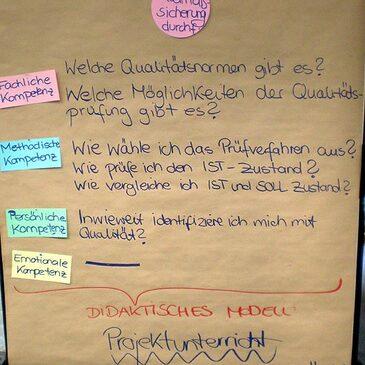 sicherung
durchf
Fachliche
Kompetenz
Welche Qualitätsnormen gibt es?
Welche Möglichkeiten der Qualitäts-
prüfung gibt es?
Methodische
Kompetenz
Wie wähle ich das Prüfverfahren aus?
Wie prüfe ich den IST-Zustand?
Wie vergleiche ich IST und SOLL Zustand?
Persönliche
Kompetenz
Inwieweit identifiziere ich mich mit
Qualität?
Emotionale
Kompetenz
DIDAKTISCHES MODELL:
Projektunterricht